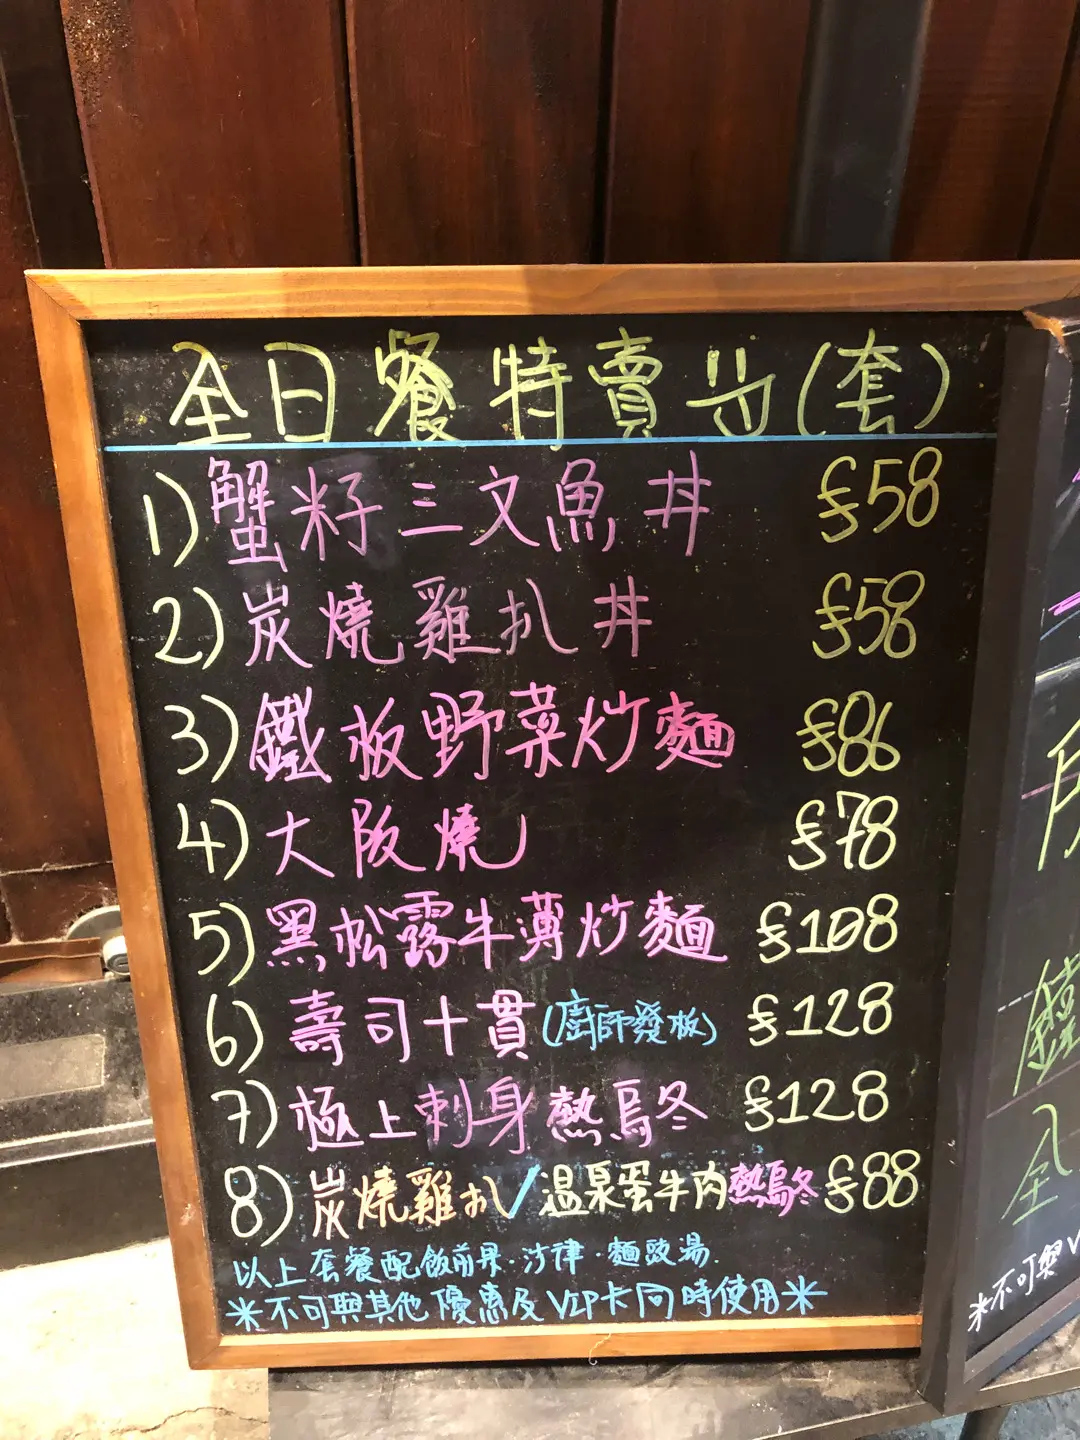 全日餐特賣 (套)
1) 蟹籽三文魚丼 $58
2) 炭燒雞扒丼 $58
3) 鐵板野菜炒麵 $86
4) 大阪燒 $78
5) 黑松露牛薄炒麵 $108
6) 壽司十貫(廚師發板) $128
7) 極上刺身熱烏冬 $128
8) 炭燒雞扒/温泉蛋牛肉熱烏冬 $88
以上套餐配飯前果·沙律·麵豉湯.
*不可與其他優惠及VIP卡同時使用*
全
*不可與